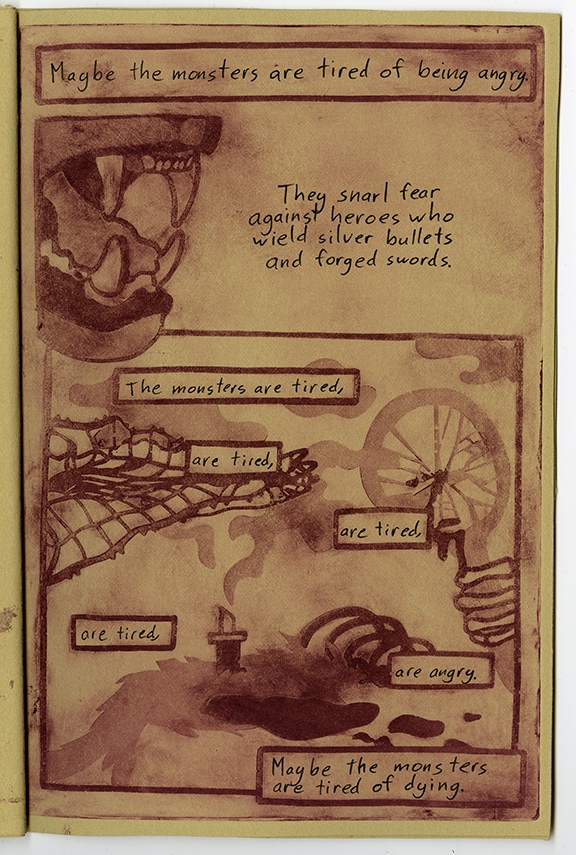 Maybe the monsters are tired of being angry.
They snarl fear
against heroes who
wield silver bullets
and forged swords.
The monsters are tired,
are tired,
are tired,
are tired,
are angry.
Maybe the monsters
are tired of dying.